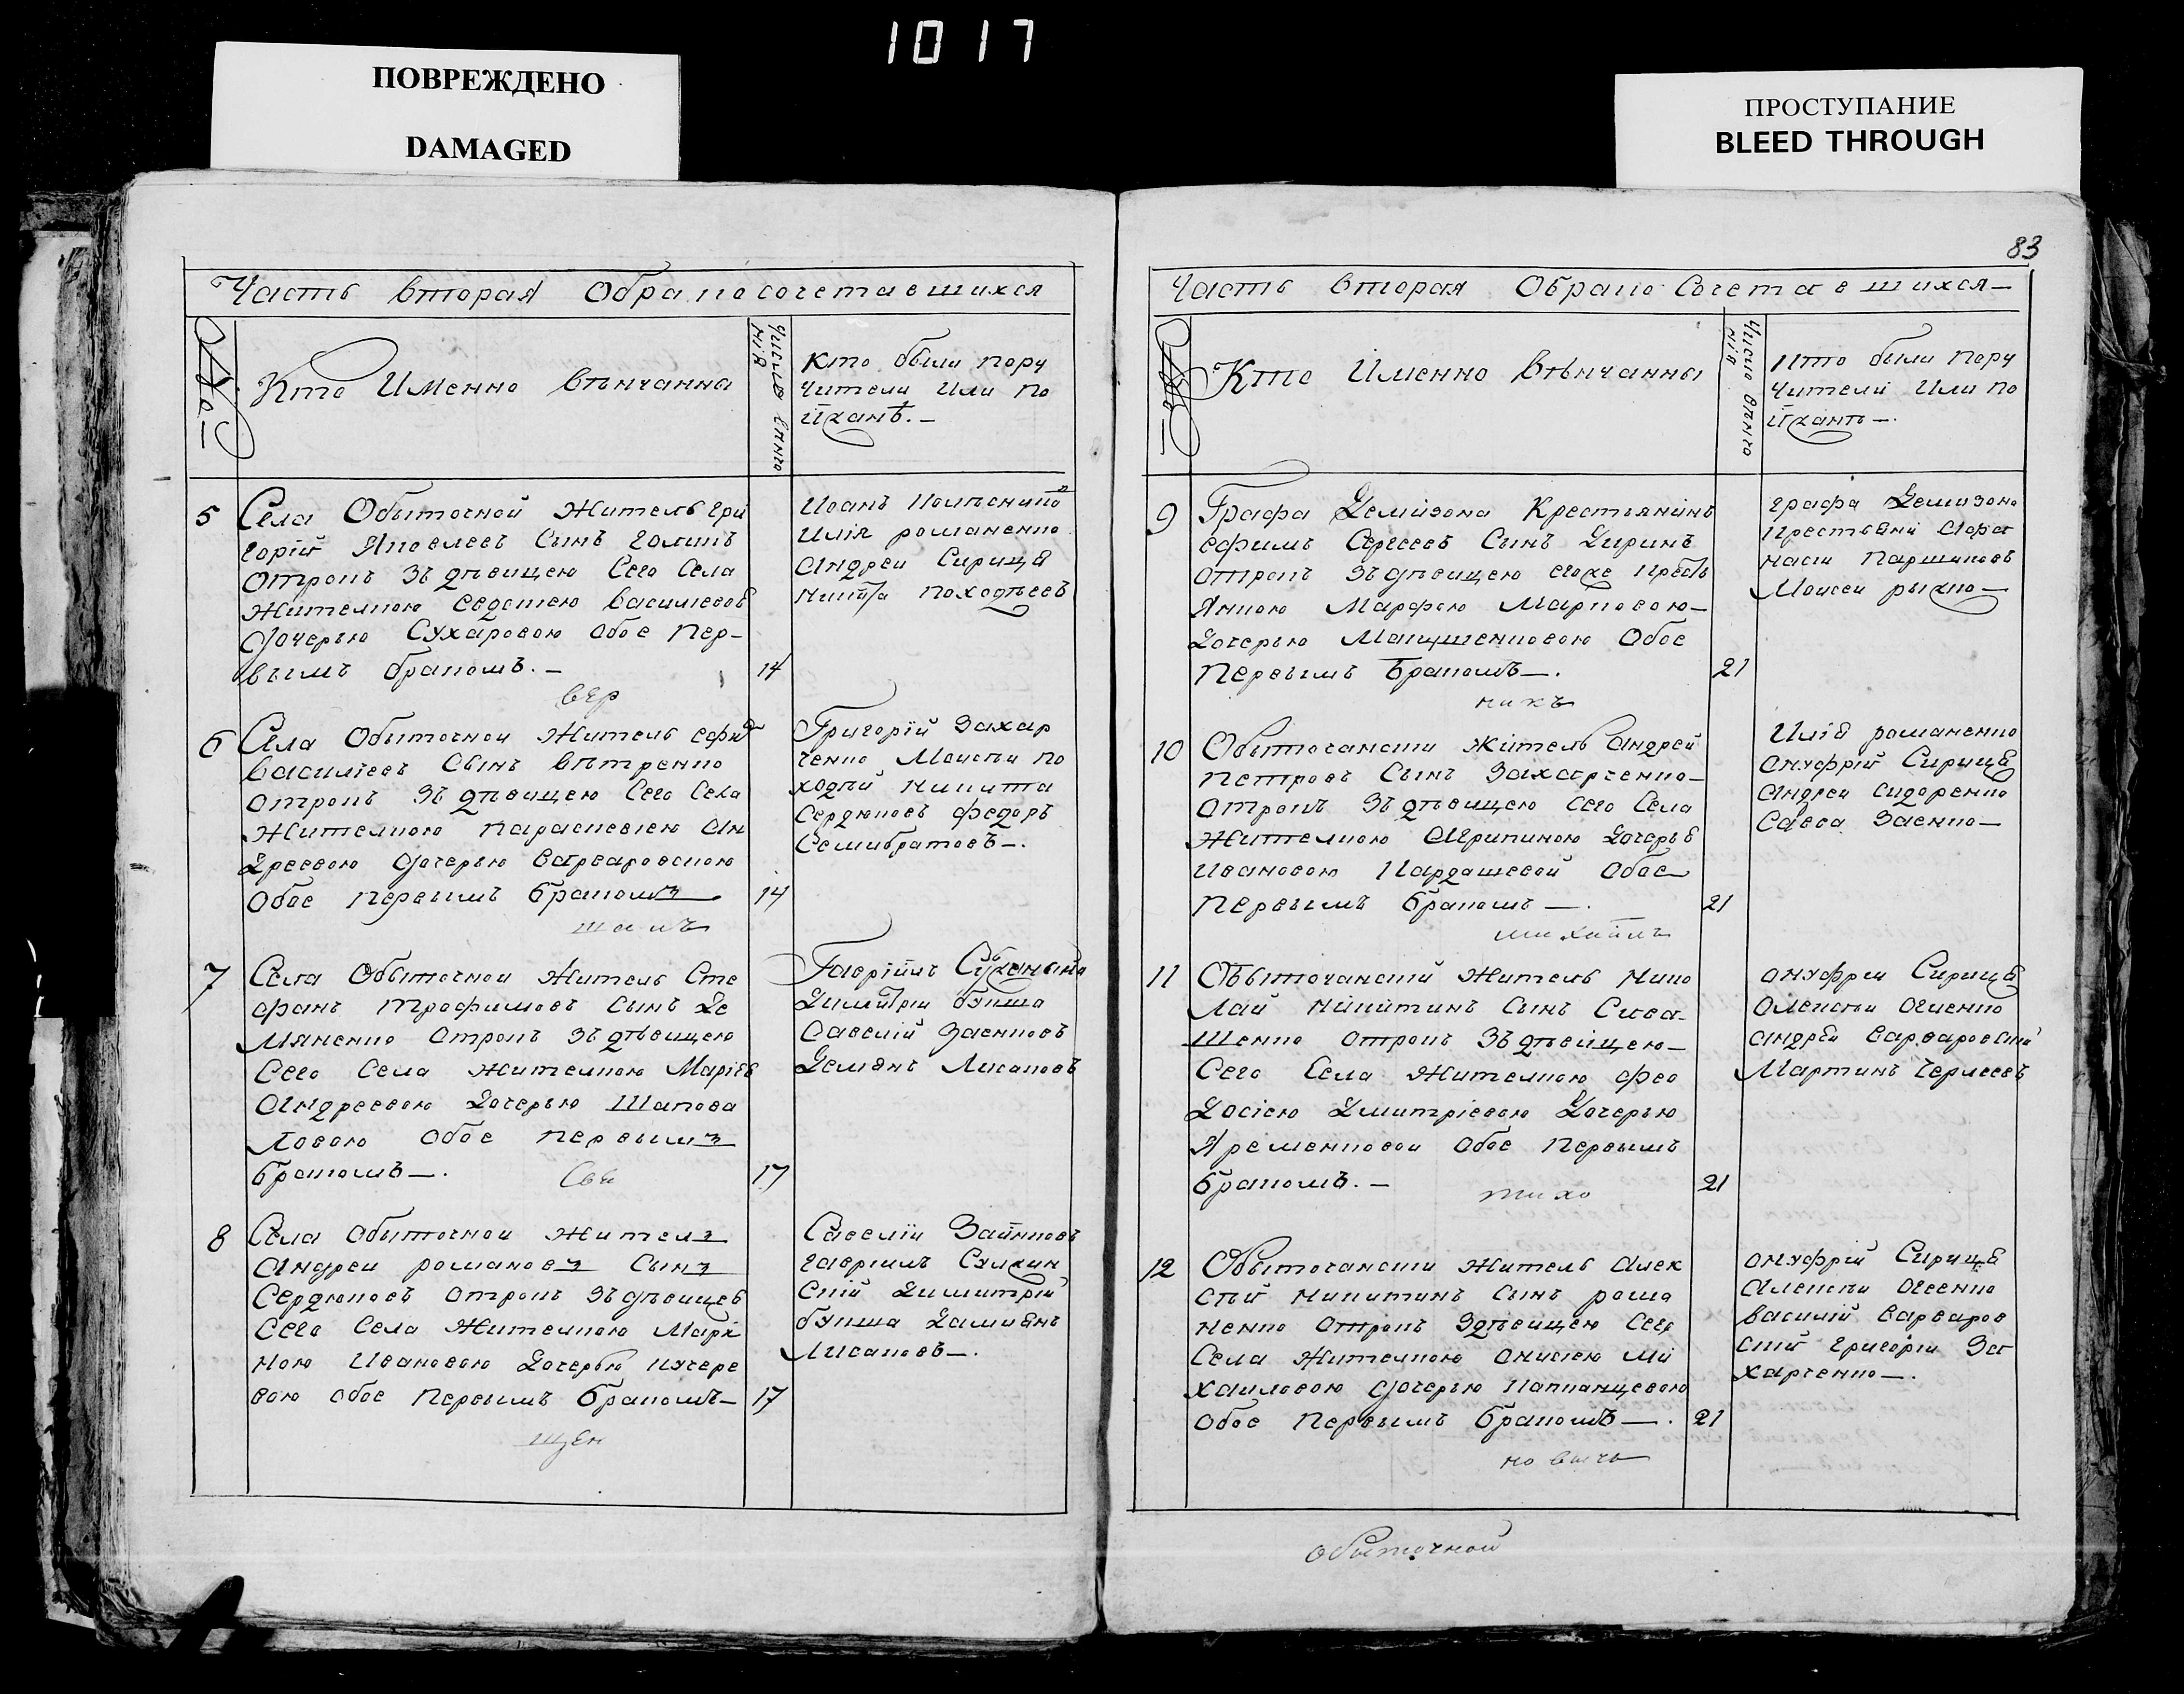 1017
ПОВРЕЖДЕНО
DAMAGED
ПРОСТУПАНИЕ
BLEED THROUGH
Часть вторая Обракосочетавшихся
Кто Именно Вѣнчанна
Число венчанія
Кто были пору
чители Или по
ѣханѣ.—
5
Села Обыточной Житель Гри
горій Яковлевъ Сынъ
Отрокъ Зъ дѣвицею Сего Села
Жителкою Федотею Василиевой
Дочерью Сухаровою Обое Пер-
вымъ бракомъ.—
14
Иоанъ
Илія романенко
Андреи Сирица
Никита Походѣевъ
вер
6
Села Обыточнои Житель
Василіевъ Сынъ Вѣтренко
Отрокъ Зъ дѣвицею Сего Села
Жителкою Параскевіею Ан
Дреевою Дочерью Варваровскою
Обое Первымъ Бракомъ
14
Григорій Захар
ченко Моисеи По
ходѣй Никита
Сердюковъ Федоръ
Семибратовъ—.
7
Села Обыточнои Житель Сте
фанъ Трофимовъ Сынъ Де
Мяненко Отрокъ Зъ дѣвицею
Сего Села Жителкою Маріею
Андреевою Дочерью Шапова
Ловою Обое первымъ
бракомъ—.
17
Гавріилъ
Димитрій
Савелій Заенковъ
Демянъ Лисаковъ
8
Села Обыточнои Житель
Андреи романовъ Сынъ
Сердюковъ Отрокъ Зъ дѣвицею
Сего Села Жителкою Мари
ною Ивановою Дочерью Кучере
вою обое Первымъ бракомъ—
17
Савеліи
гаврилъ
Скій Димитрій
Дамиянъ
Лисаковъ—.
щен
83
Часть вторая Обрако Сочетавшихся—
Кто Именно Вѣнчанны
Число вѣнчанія
Кто были пору
чители Или по
ѣханѣ—.
9
Графа Демізона Крестьянинъ
ефимъ Сергеевъ Сынъ
отрокъ Зъ дѣвицею егоже Кресть
Янкою Марфою Марковою—
Дочерью Обое
Первымъ Бракомъ—.
21
Графа Демизона
Крестьяни Афа
наси Паршиковъ
Моисеи рыжко—
никъ
10
Обыточански Житель Андрей
Петровъ Сынъ Захарченко—
Отрокъ Зъ дѣвицею Сего Села
Жителкою Агрипиною Дочерью
Ивановою Кардашевой Обое
Первымъ бракомъ—.
21
Илія романенко
Онуфрій Сирица
Андреи сидоренко
Савва Заенко—
михаилъ
11
Обыточанскій Житель Нико
Лай Никитинъ Сынъ Сива
Шенко отрокъ Зъ дѣвицею—
Сего Села Жителкою фео
Досіею Дмитріевою Дочерью
Яременковой Обое Первымъ
Бракомъ.—
21
Онуфреи Сирица
Олексѣи Огиенко
андреи Варваровскій
Мартинъ
тихо
12
Обыточански Житель Алек
Сѣй Никитинъ Сынъ рома
ненко Отрокъ Здѣвицею Сего
Села Жителкою Онисіею Ми
хаиловою Дочерью
Обое Первымъ бракомъ—.
21
Онуфрій Сирица
Алексѣи Огеенко
василій Варваров
Скій Григоріи За
харченко—.
новичь
обыточной